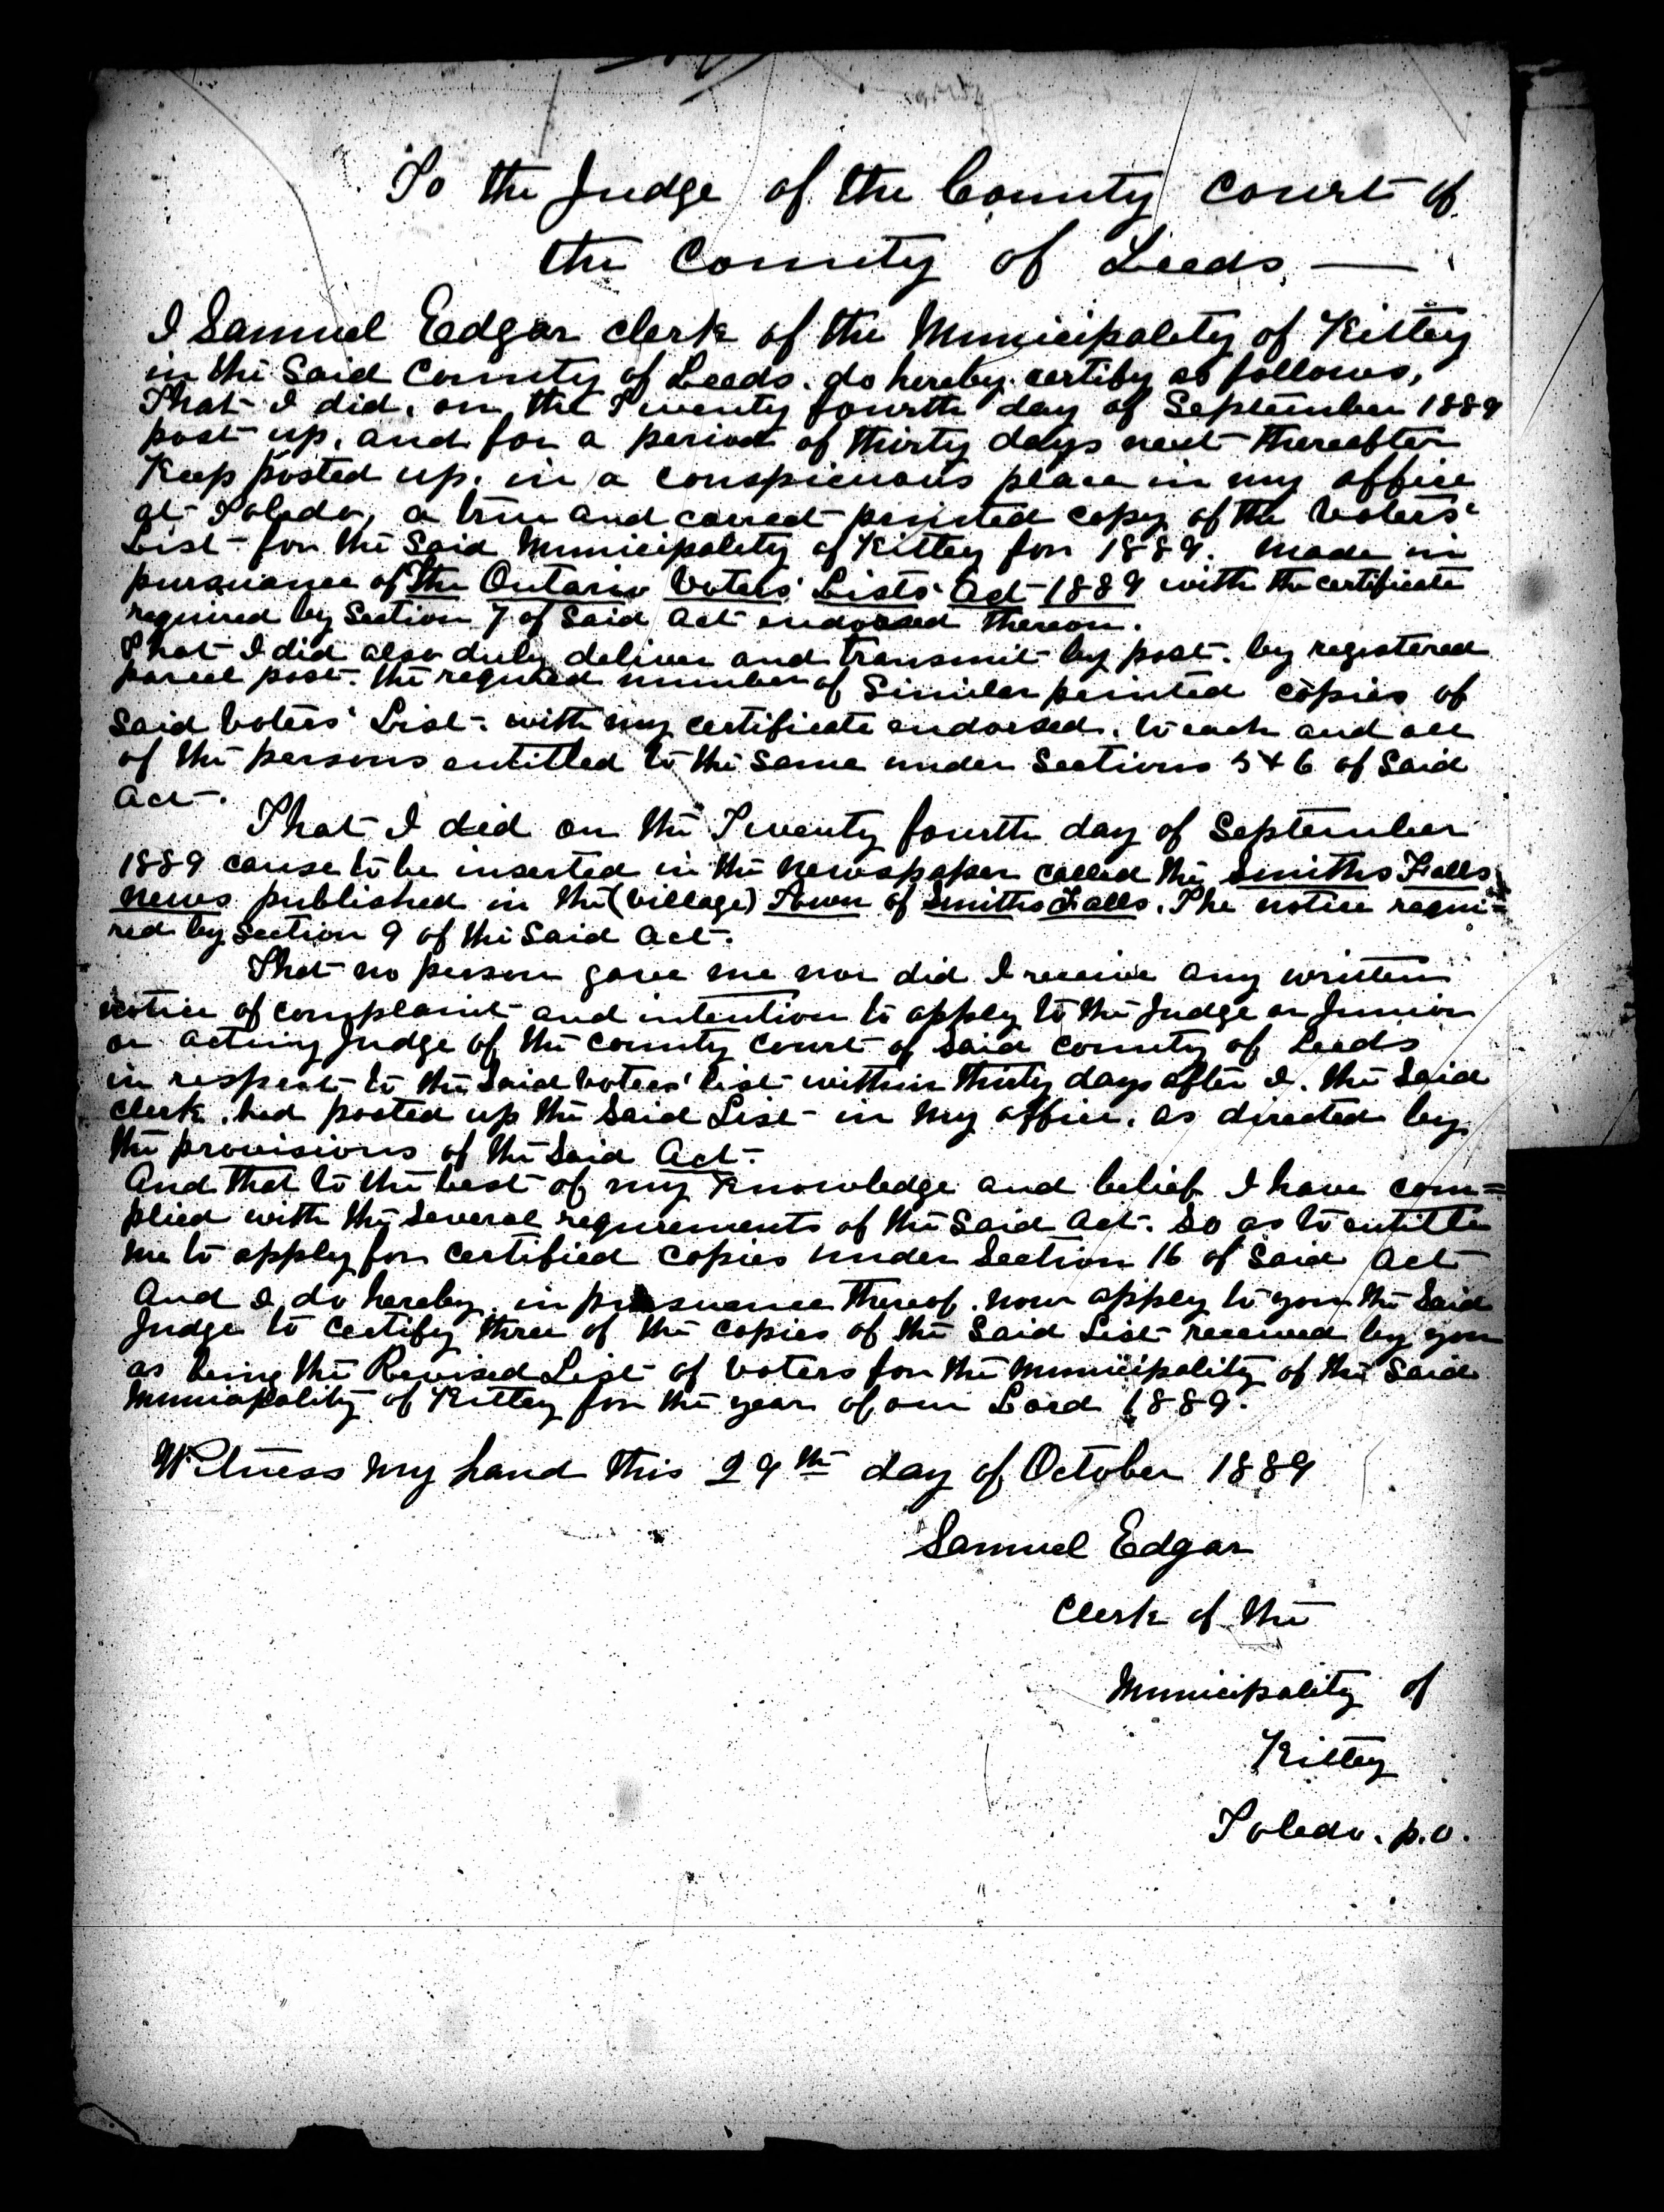 To the Judge of the County Court of
the County of Leeds —
I Samuel Edgar clerk of the Municipality of Kitley
in the Said County of Leeds. do hereby certify as follows,
That I did, on the Twenty fourth day of September 1889
post up, and for a period of thirty days next thereafter
Keep posted up. in a conspicuous place in my office
at Toledo, a true and correct printed copy of the Voters'
List for the Said Municipality of Kitley for 1889. made in
pursuance of The Ontario Voters' Lists' Act 1889 with the certificate
required by Section 7 of Said Act endorsed thereon.
That I did also duly deliver and transmit by post. by registered
parcel post. the required number of Similar printed copies of
Said Voters' List. with my certificate endorsed. to each and all
of the persons entitled to the Same under Sections 5 & 6 of Said
Act.
That I did on the Twenty fourth day of September
1889 cause to be inserted in the newspaper called the Smiths Falls
News published in the (Village) Town of Smiths Falls. The notice requi=
red by Section 9 of the Said Act.
That no person gave me nor did I receive any written
notice of complaint and intention to apply to the Judge or Junior
or acting Judge of the County Court of Said County of Leeds
in respect to the Said Voters' list within thirty days after I. the Said
Clerk. had posted up the Said List in my office. as directed by
the provisions of the Said Act.
And that to the best of my Knowledge and belief I have com=
plied with the Several requirements of the Said Act. So as to entitle
me to apply for certified copies under Section 16 of Said Act
And I do hereby. in pursuance thereof. now apply to you the Said
Judge to certify three of the copies of the Said List received by you
as being the Revised List of Voters for the Municipality of the Said
Municipality of Kitley for the year of our Lord 1889.
Witness my hand this 29th day of October 1889
Samuel Edgar
Clerk of the
Municipality of
Kitley
Toledo. p.o.